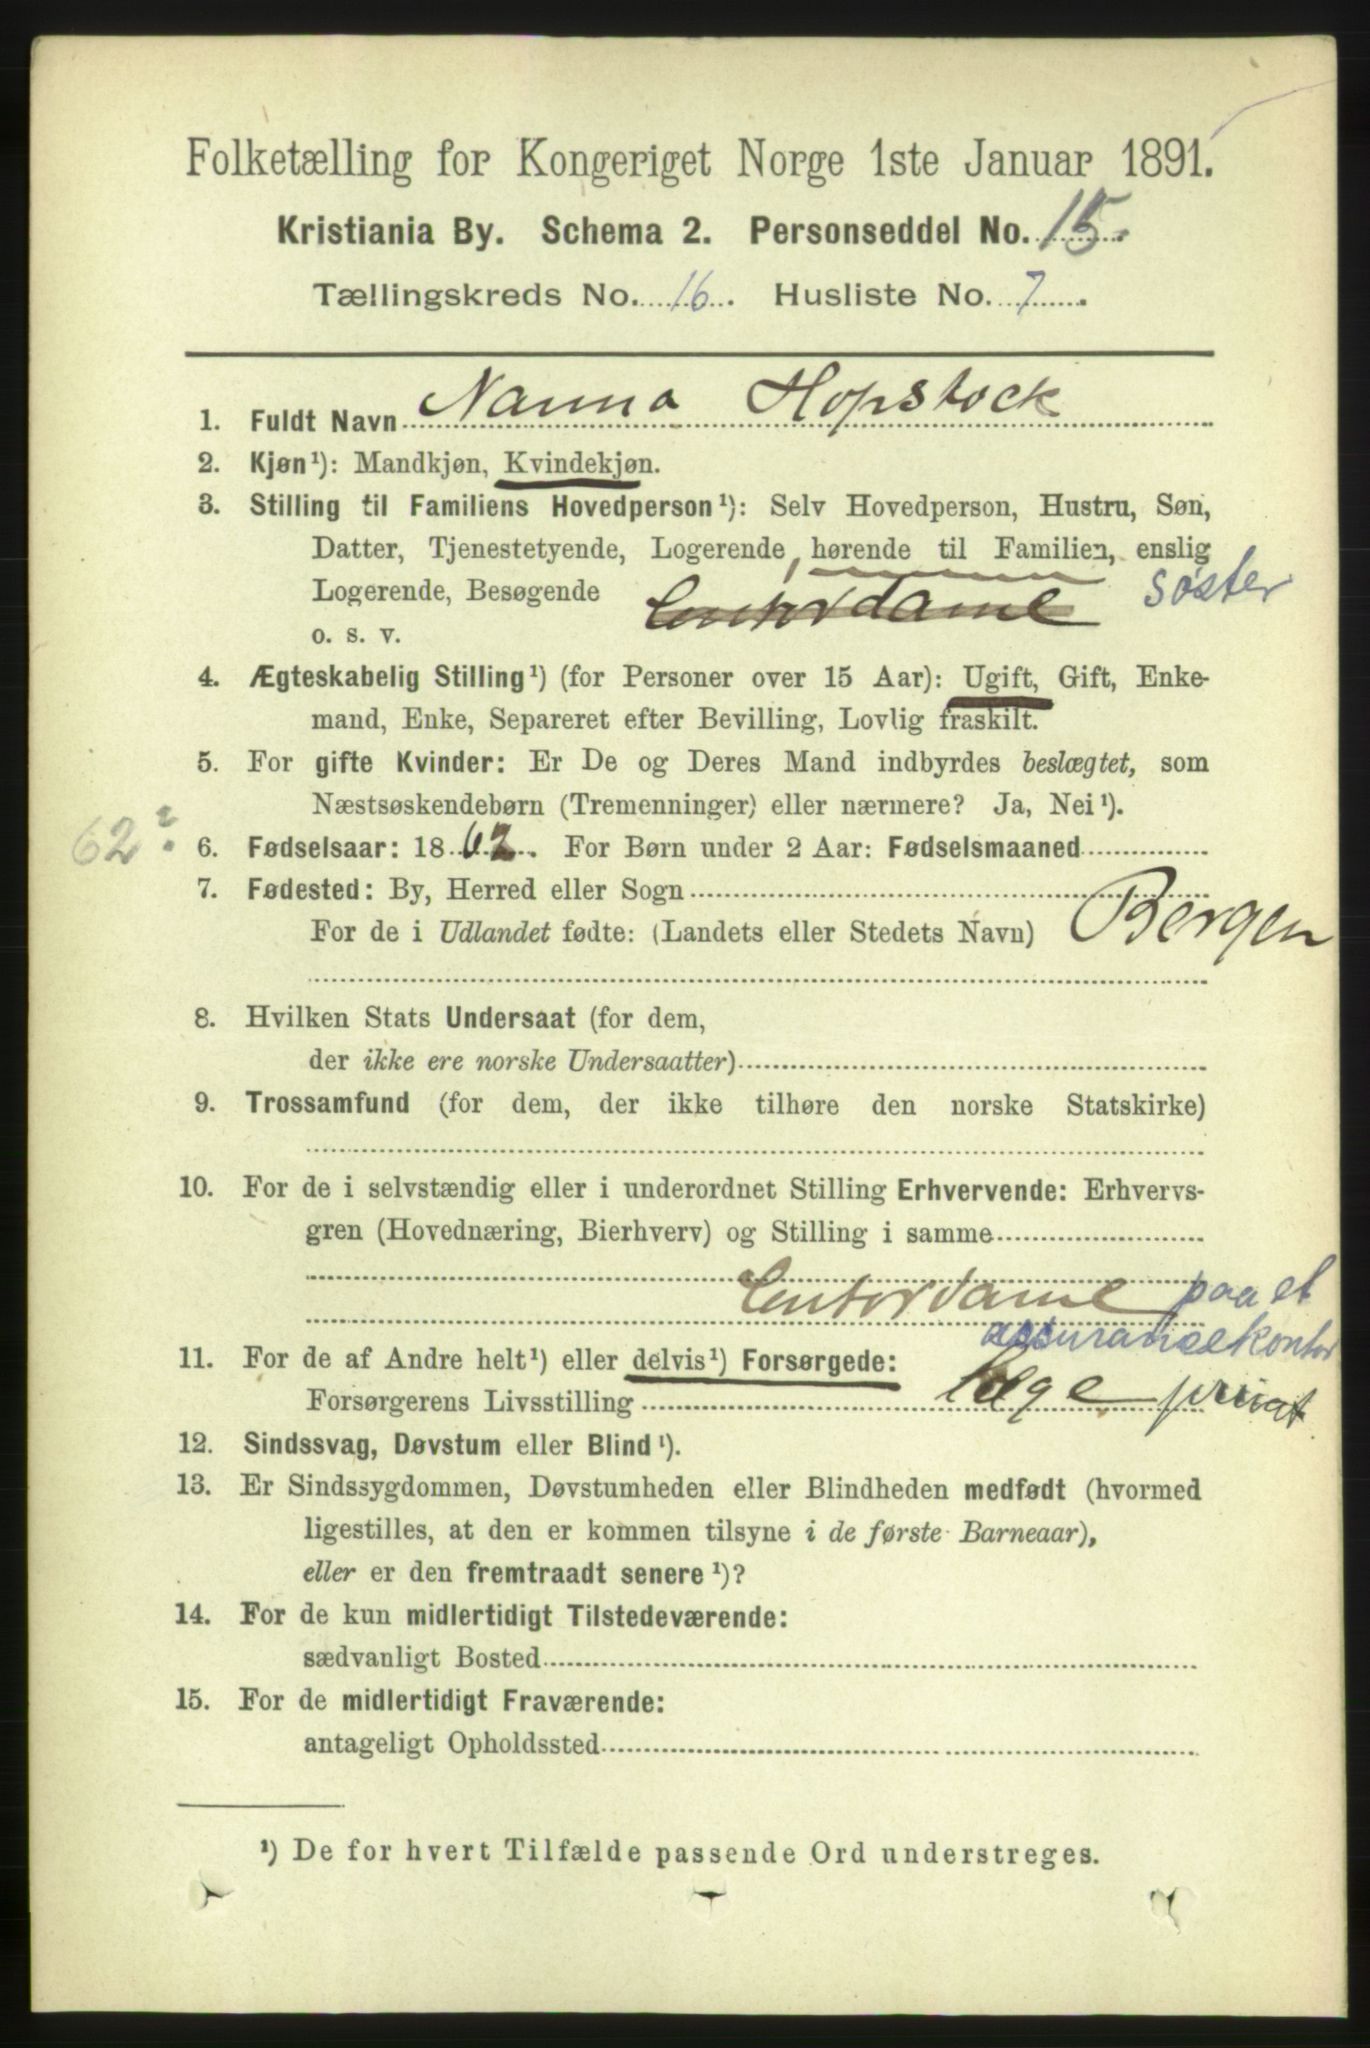 Folketælling for Kongeriget Norge 1ste Januar 1891.
Kristiania By. Schema 2. Personseddel No. 15.
Tællingskreds No. 16. Husliste No. 7.
1. Fuldt Navn Nanna Hopstock
2. Kjøn¹): Mandkjøn, Kvindekjøn.
3. Stilling til Familiens Hovedperson¹): Selv Hovedperson, Hustru, Søn,
Datter, Tjenestetyende, Logerende, hørende til Familien, enslig
Logerende, Besøgende Contordame søster
o. s. v.
4. Ægteskabelig Stilling¹) (for Personer over 15 Aar): Ugift, Gift, Enke-
mand, Enke, Separeret efter Bevilling, Lovlig fraskilt.
5. For gifte Kvinder: Er De og Deres Mand indbyrdes beslægtet, som
Næstsøskendebørn (Tremenninger) eller nærmere? Ja, Nei¹).
62? 6. Fødselsaar: 1862. For Børn under 2 Aar: Fødselsmaaned
7. Fødested: By, Herred eller Sogn
For de i Udlandet fødte: (Landets eller Stedets Navn) Bergen
8. Hvilken Stats Undersaat (for dem,
der ikke ere norske Undersaatter)
9. Trossamfund (for dem, der ikke tilhøre den norske Statskirke)
10. For de i selvstændig eller i underordnet Stilling Erhvervende: Erhvervs-
gren (Hovednæring, Bierhverv) og Stilling i samme
Contordame paa et
assurancekontor
11. For de af Andre helt¹) eller delvis¹) Forsørgede:
Forsørgerens Livsstilling Læge privat
12. Sindssvag, Døvstum eller Blind¹).
13. Er Sindssygdommen, Døvstumheden eller Blindheden medfødt (hvormed
ligestilles, at den er kommen tilsyne i de første Barneaar),
eller er den fremtraadt senere¹)?
14. For de kun midlertidigt Tilstedeværende:
sædvanligt Bosted
15. For de midlertidigt Fraværende:
antageligt Opholdssted
¹) De for hvert Tilfælde passende Ord understreges.